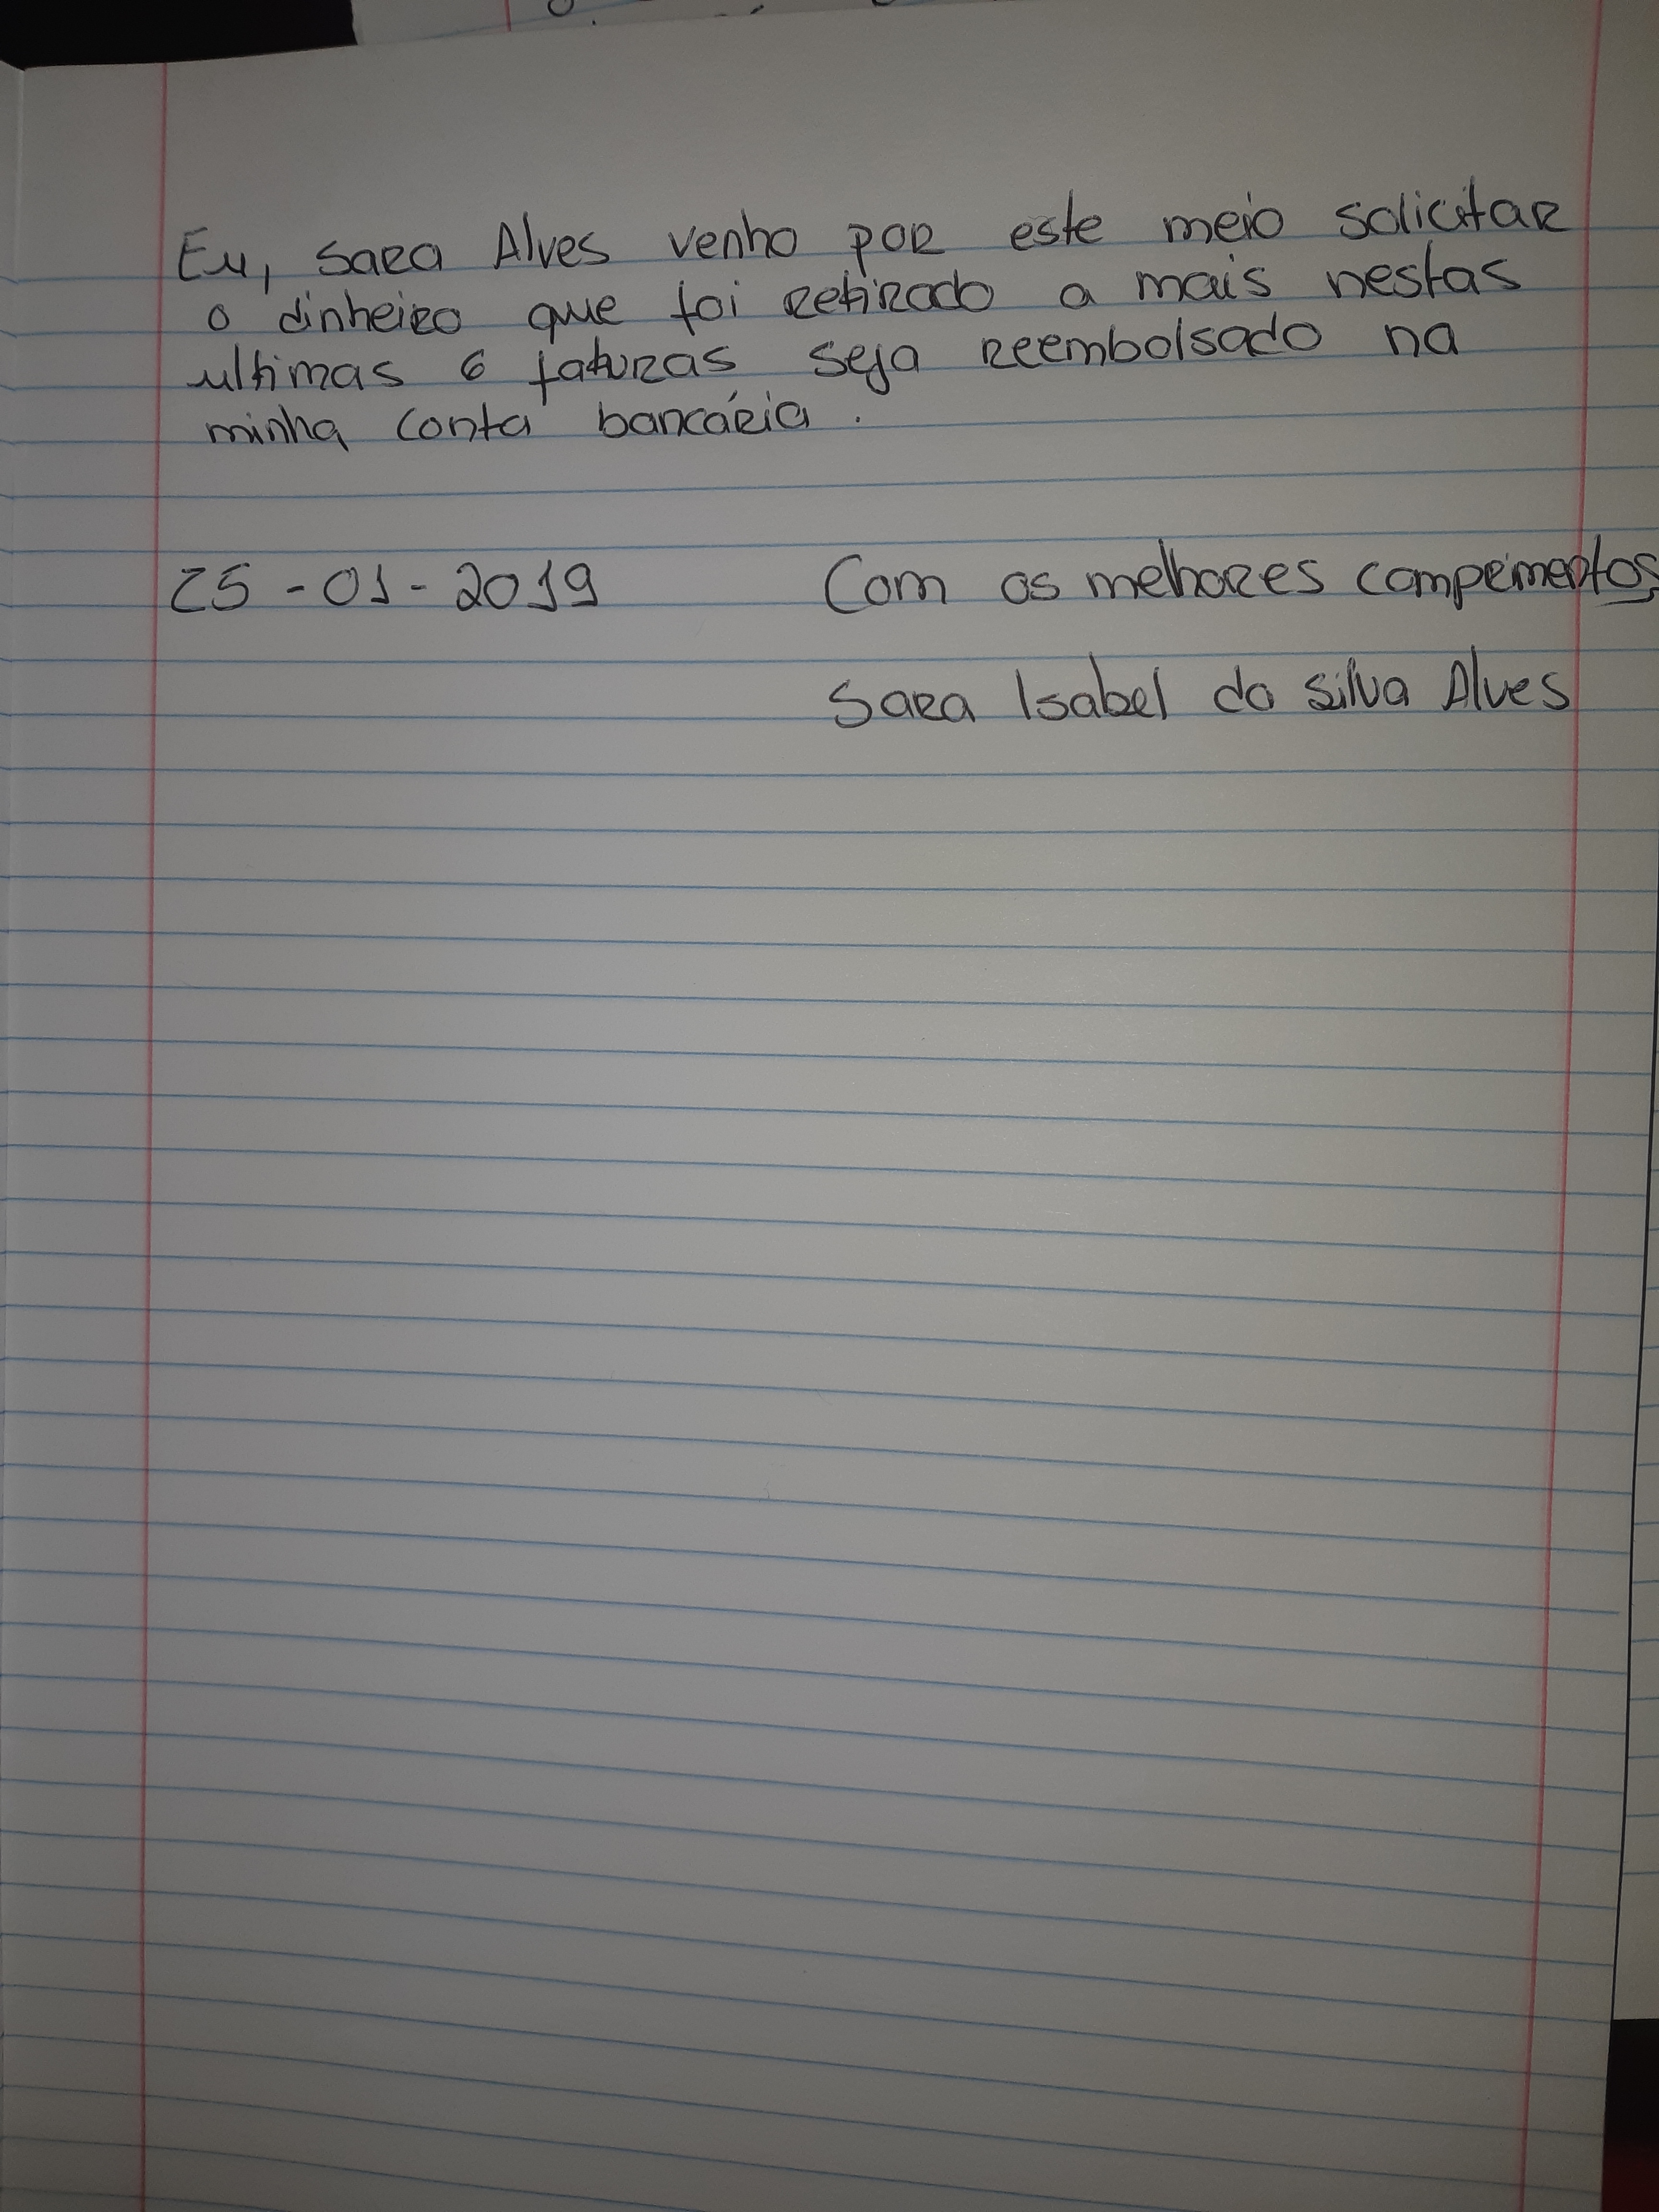 Eu, Sara Alves venho por este meio solicitar
o dinheiro que foi retirado a mais nestas
ultimas 6 faturas seja reembolsado na
minha conta bancária.
25-01-2019 Com os melhores comprimentos,
Sara Isabel da Silva Alves